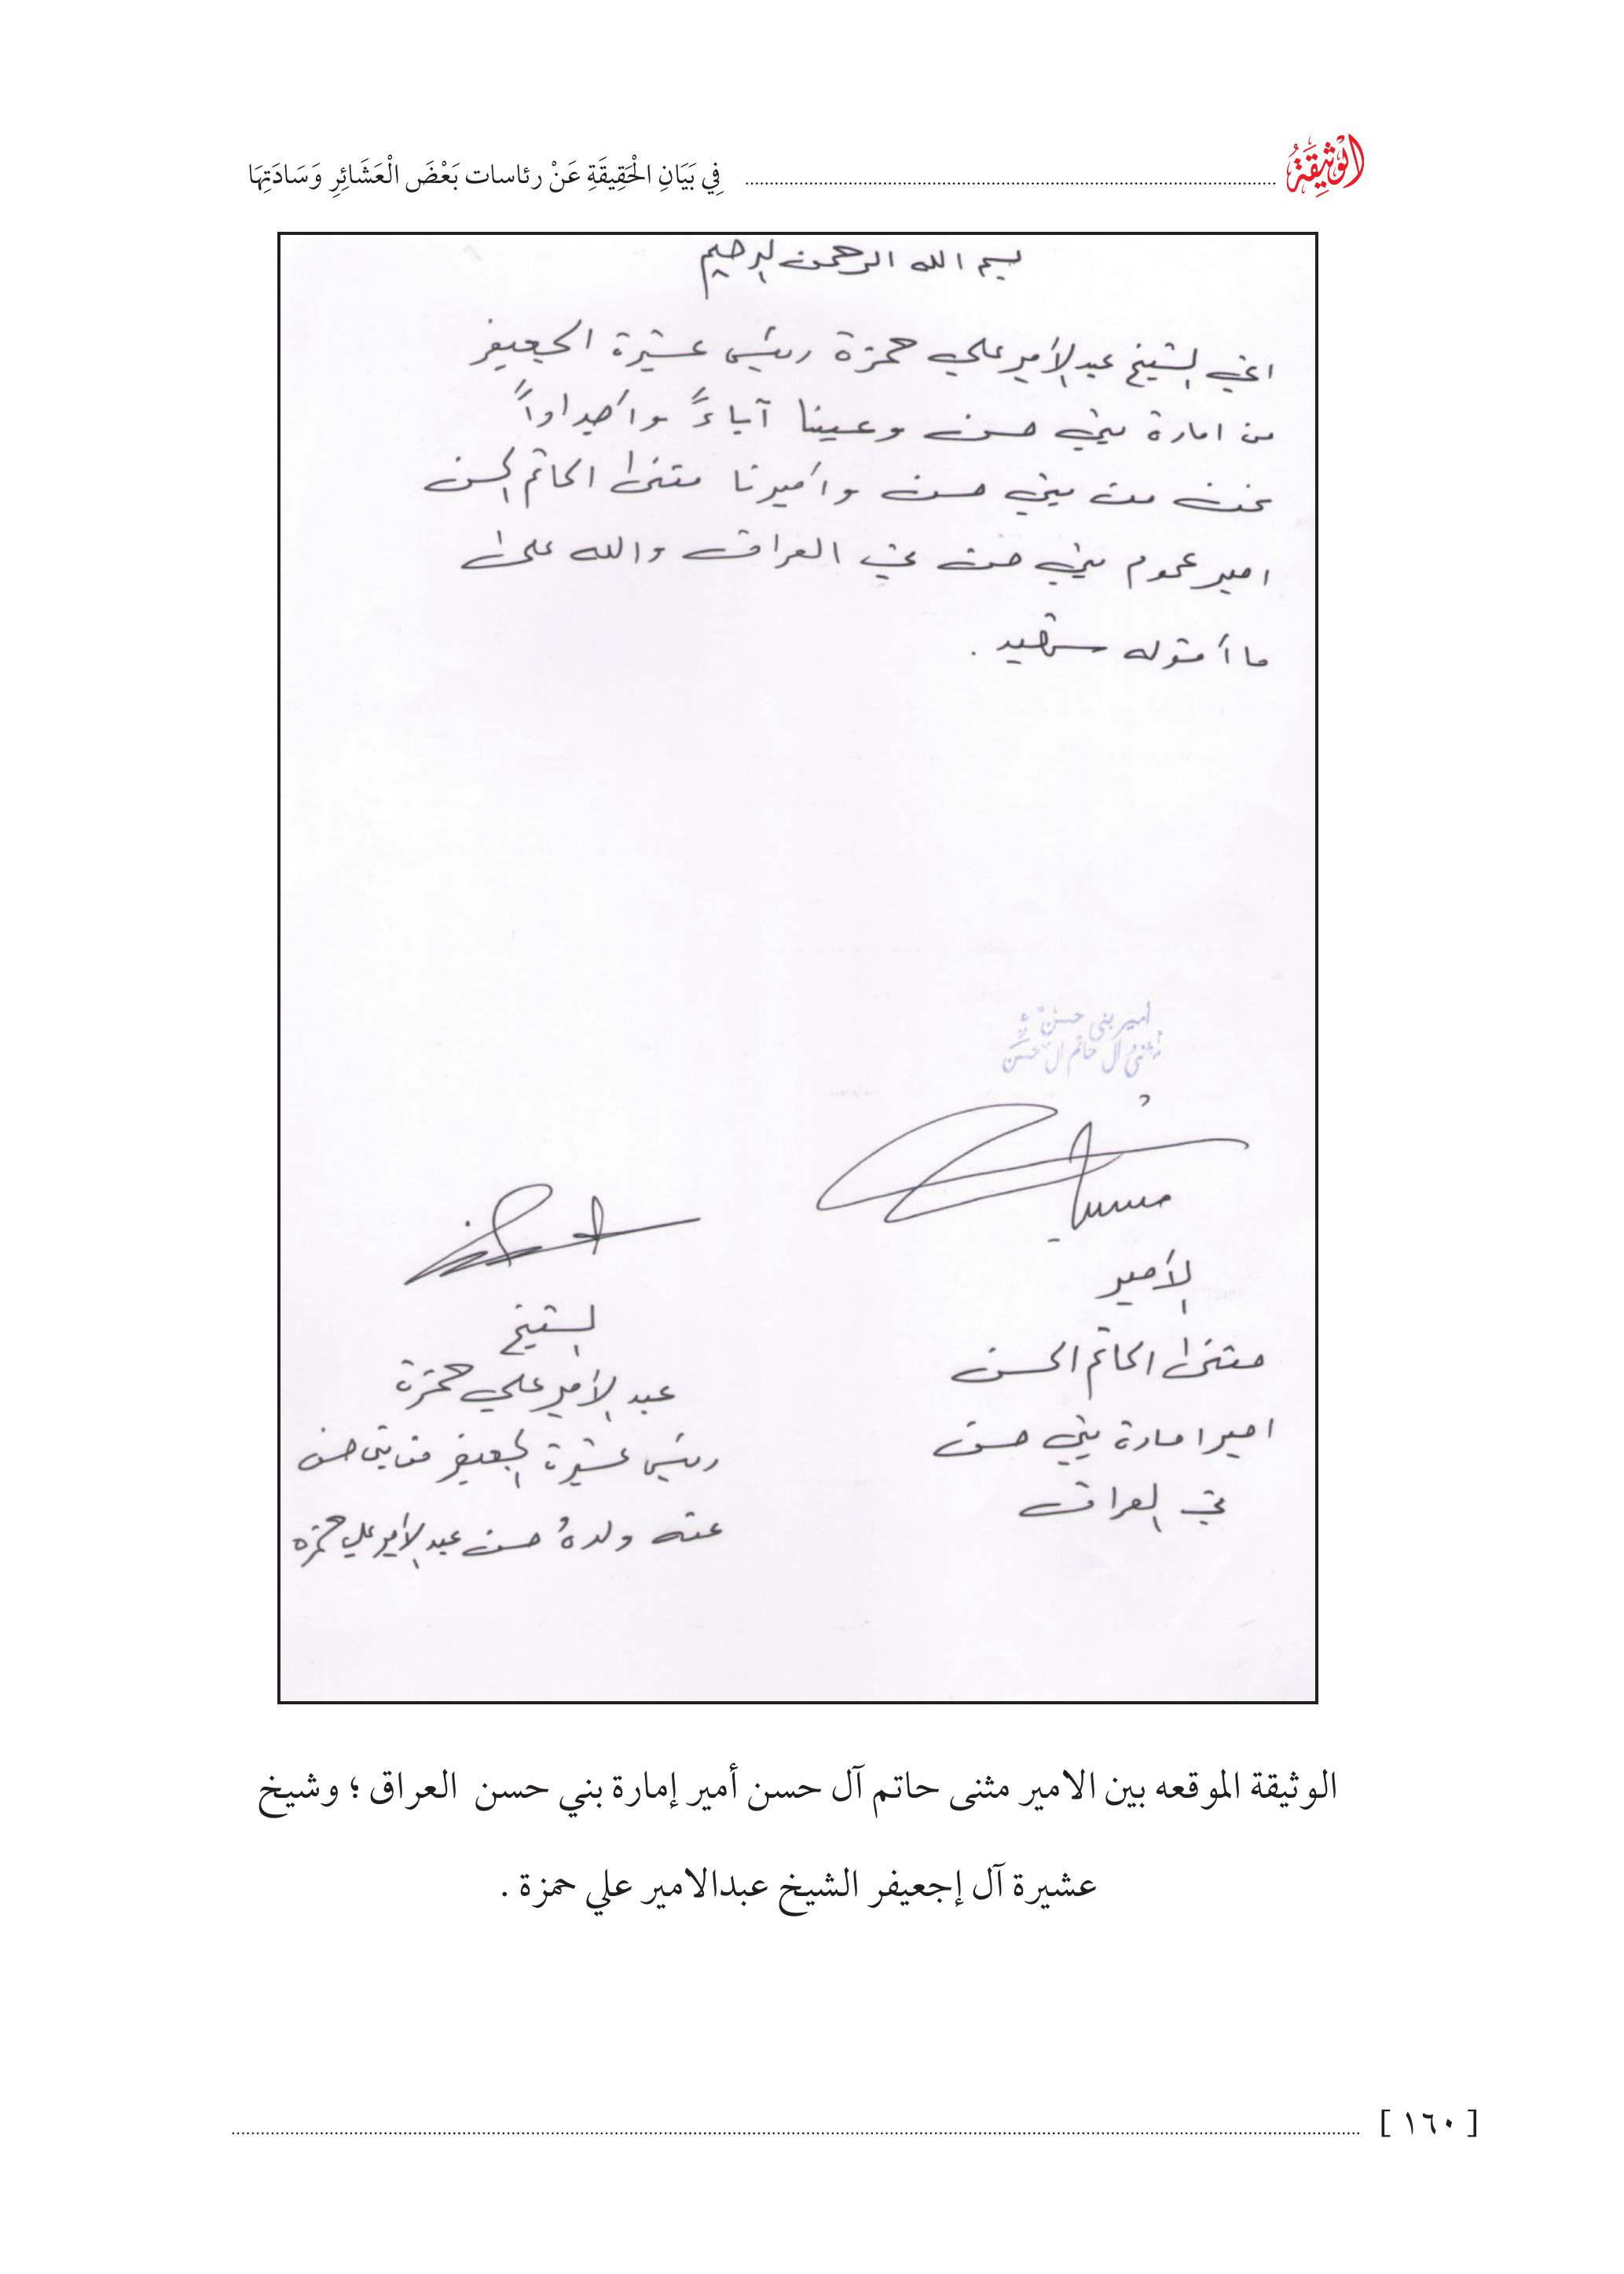 الْوَثِيقَةُ فِي بَيَانِ الْحَقِيقَةِ عَنْ رئاسات بَعْضَ الْعَشَائِرِ وَسَادَتِهَا
بسم الله الرحمن الرحيم
اني الشيخ عبد الأمير علي حمزة رئيس عشيرة الجعيفر
من امارة بني حسن آباءً وأجداداً
نحن من بني حسن وأميرنا مثنى الحاتم الحسن
امير عموم بني حسن في العراق والله على
ما أقوله شهيد .
أمير بني حسن
مثنى آل حاتم آل حسن
الأمير
مثنى الحاتم الحسن
امير امارة بني حسن
في العراق
الشيخ
عبد الأمير علي حمزة
رئيس عشيرة الجعيفر من بني حسن
عنه ولدهُ حسن عبد الأمير علي حمزه
الوثيقة الموقعه بين الامير مثنى حاتم آل حسن أمير إمارة بني حسن العراق ؛ وشيخ
عشيرة آل إجعيفر الشيخ عبدالامير علي حمزة .
[ ١٦٠ ]